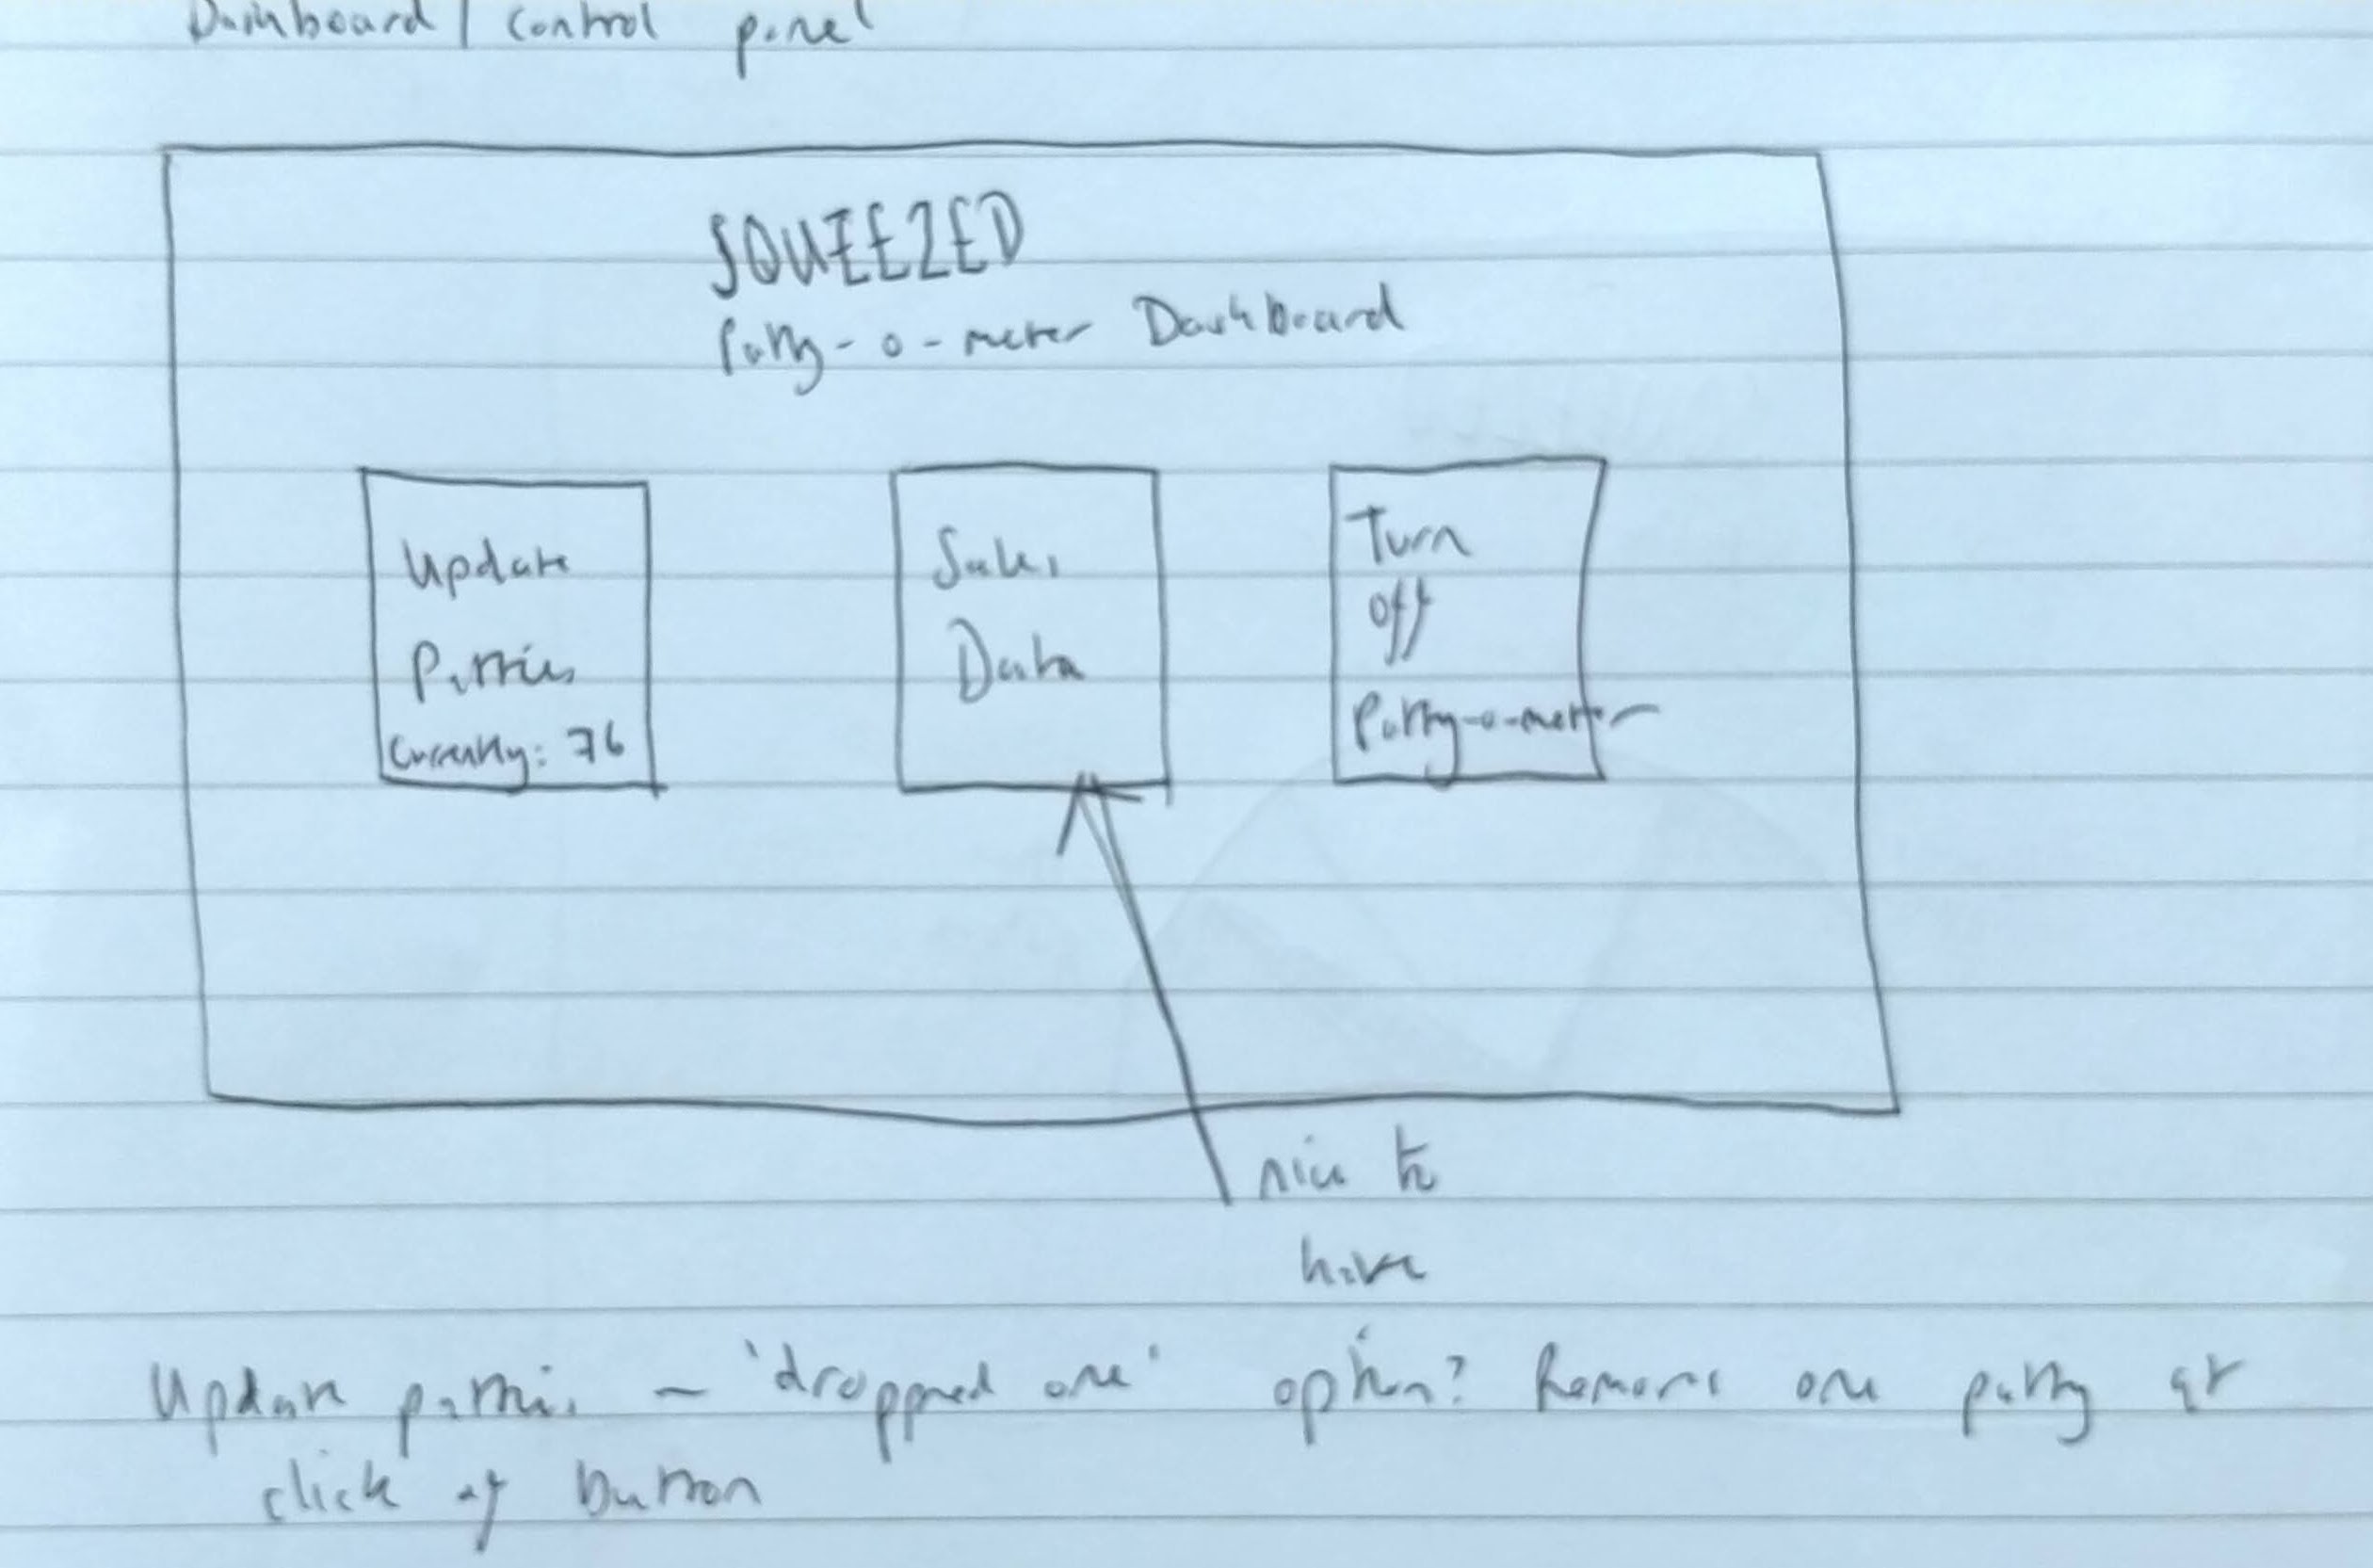 Dashboard / Control panel
SQUEEZED
Patty-o-meter Dashboard
Update
Patties
Currently: 76
Sales
Data
Turn
off
Patty-o-meter
nice to
have
Update patties - 'dropped one' option? Remove one patty at
click of button